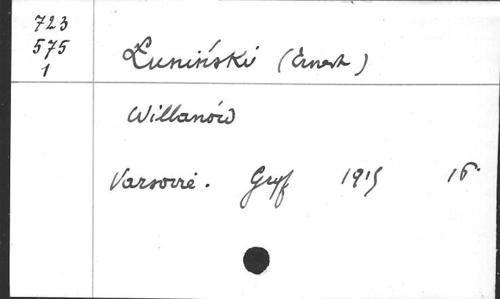 723
575
1
Łuniński (Ernest)
Willanów
Varsovie. Gryf 1915 16°